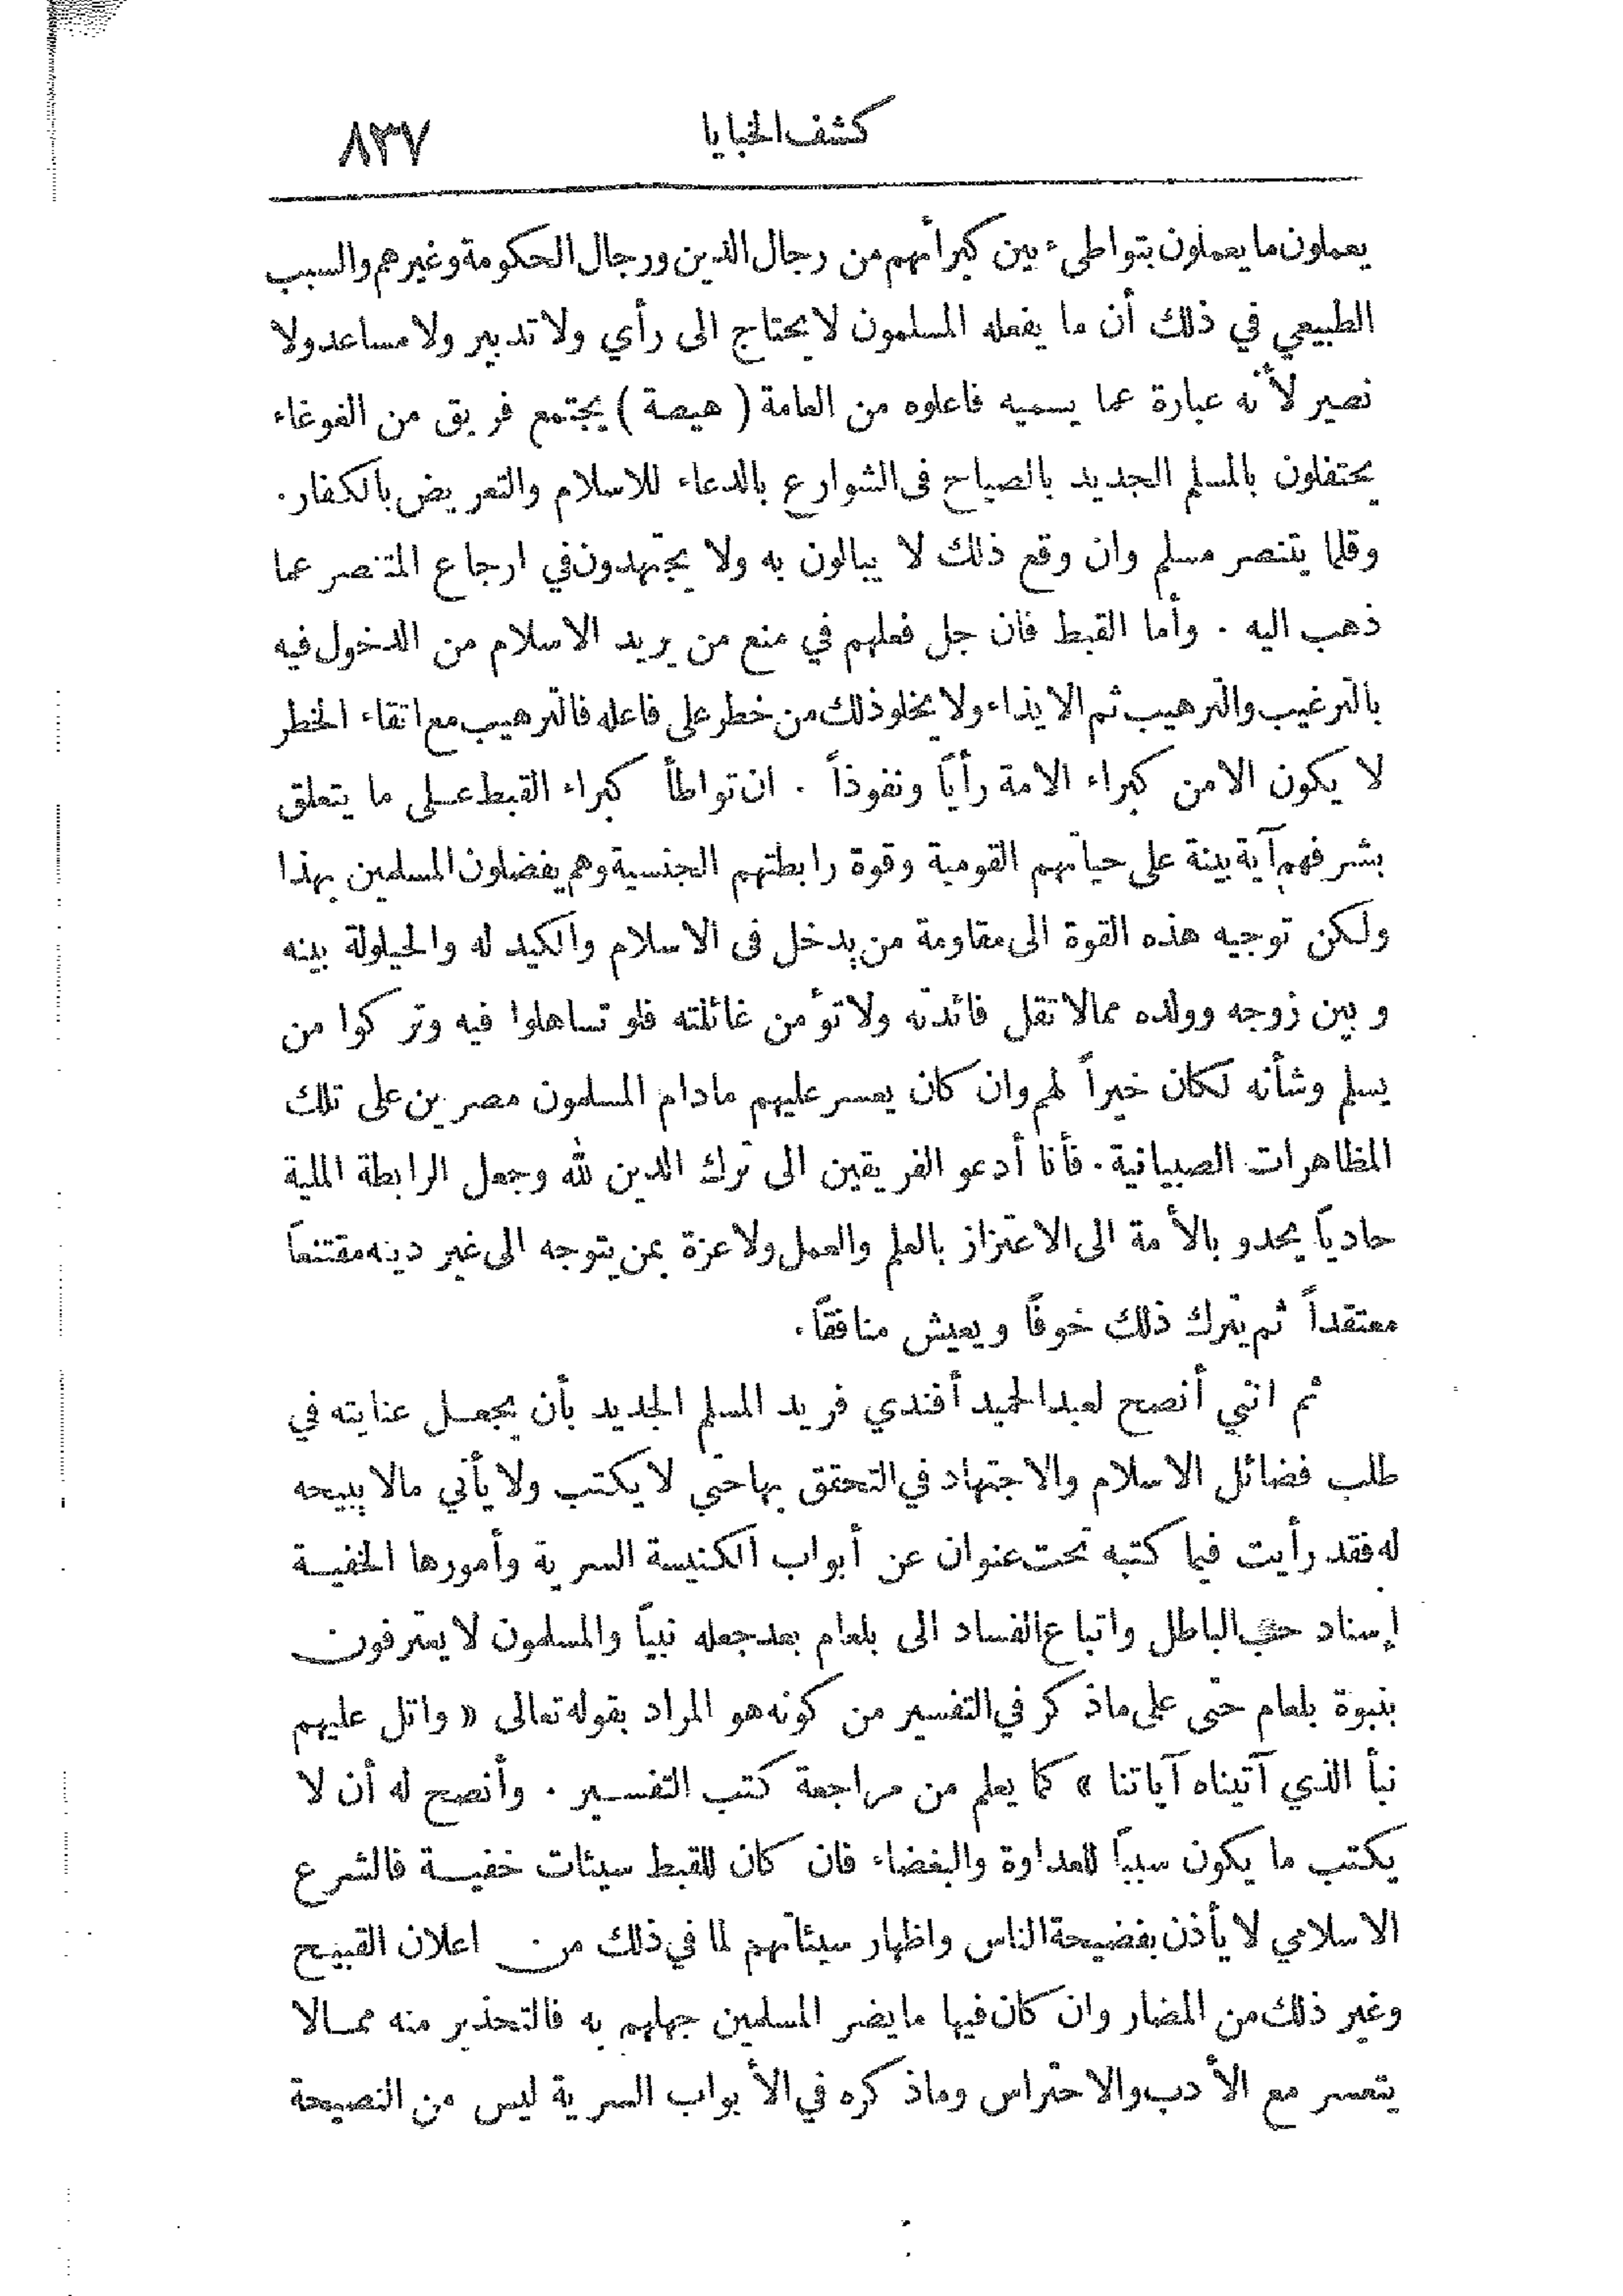 كشف الخبايا
٨٣٧
يعملون ما يعملون بتواطىء بين كبرائهم من رجال الدين ورجال الحكومة وغيرهم والسبب
الطبيعي في ذلك أن ما يفعله المسلمون لا يحتاج الى رأي ولا تدبير ولا مساعد ولا
نصير لأنه عبارة عما يسميه فاعلوه من العامة ( هيصة ) يجتمع فريق من الغوغاء
يحتفلون بالمسلم الجديد بالصياح فى الشوارع بالدعاء للاسلام والتعريض بالكفار .
وقلما يتنصر مسلم وان وقع ذلك لا يبالون به ولا يجتهدون في ارجاع المتنصر عما
ذهب اليه . وأما القبط فان جل فعلهم في منع من يريد الاسلام من الدخول فيه
بالترغيب والترهيب ثم الايذاء ولا يخلو ذلك من خطر على فاعله فالترهيب مع اتقاء الخطر
لا يكون الا من كبراء الامة رأيًا ونفوذاً . ان تواطأ كبراء القبط على ما يتعلق
بشرفهم آية بينة على حياتهم القومية وقوة رابطتهم الجنسية وهم يفضلون المسلمين بهذا
ولكن توجيه هذه القوة الى مقاومة من يدخل فى الاسلام والكيد له والحيلولة بينه
وبين زوجه وولده مما لا تقل فائدته ولا تؤمن غائلته فلو تساهلوا فيه وتركوا من
يسلم وشأنه لكان خيراً لهم وان كان يعسر عليهم مادام المسلمون مصرين على تلك
المظاهرات الصبيانية . فأنا أدعو الفريقين الى ترك الدين لله وجعل الرابطة الملية
حاديًا يحدو بالأمة الى الاعتزاز بالعلم والعمل ولا عزة بمن يتوجه الى غير دينه مقتنعاً
معتقداً ثم يترك ذلك خوفًا ويعيش منافقًا .
ثم انني أنصح لعبد الحميد أفندي فريد المسلم الجديد بأن يجعل عنايته في
طلب فضائل الاسلام والاجتهاد في التحقق بها حتى لا يكتب ولا يأتي مالا يبيحه
له فقد رأيت فيما كتبه تحت عنوان عن أبواب الكنيسة السرية وأمورها الخفية
إسناد حب الباطل واتباع الفساد الى بلعام بعد جعله نبيًا والمسلمون لا يعترفون
بنبوة بلعام حتى على ماذكر في التفسير من كونه هو المراد بقوله تعالى « واتل عليهم
نبأ الذي آتيناه آياتنا » كما يعلم من مراجعة كتب التفسير . وأنصح له أن لا
يكتب ما يكون سببًا للعداوة والبغضاء فان كان للقبط سيئات خفية فالشرع
الاسلامي لا يأذن بفضيحة الناس واظهار سيئاتهم لما في ذلك من اعلان القبيح
وغير ذلك من المضار وان كان فيها ما يضر المسلمين جهلهم به فالتحذير منه مما لا
يتعسر مع الأدب والاحتراس وماذكره في الأبواب السرية ليس من النصيحة